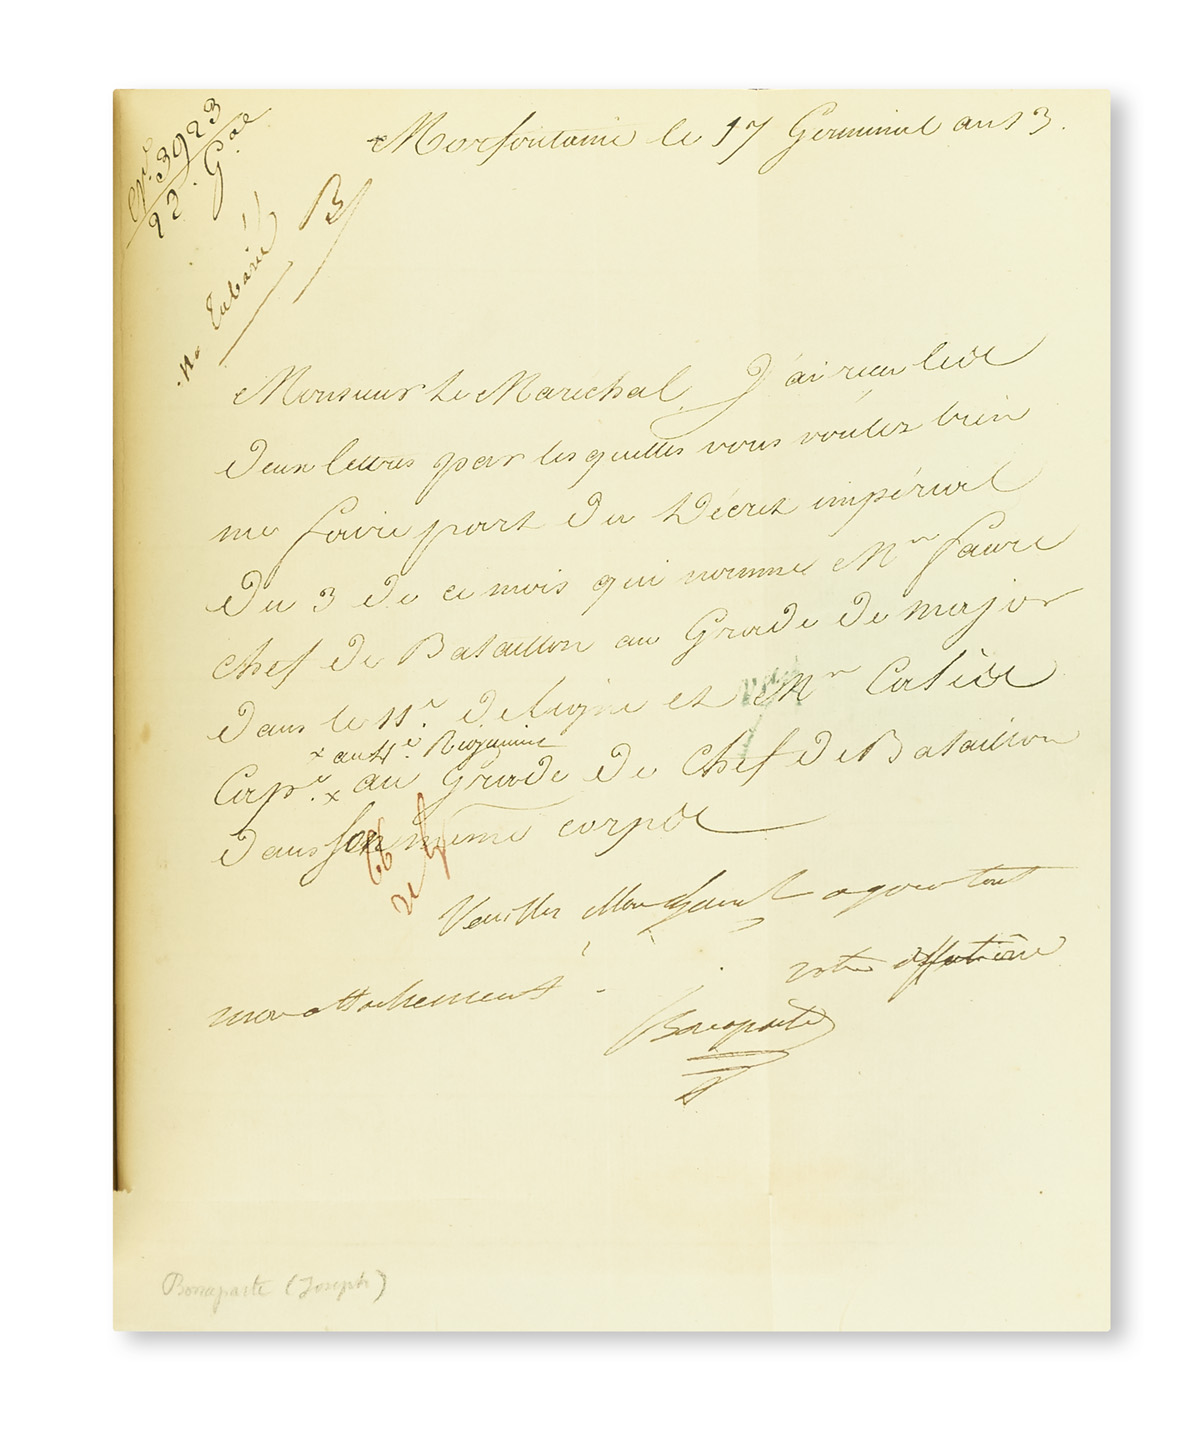 Nº 3923
22. Gal
B
Morfontaine le 17 Germinal an 13.
Monsieur le Maréchal J'ai reçu les
deux lettres par lesquelles vous voulez bien
me faire part du Décret impérial
du 3 de ce mois qui nomme Mr faure
chef de Bataillon au Grade de major
dans le 11e. de ligne et Mr
x au 4e. Regiment
Capne. x au Grade de chef de Bataillon
dans son même corps
Veuillez Mon agréer tout
mon attachement
votre affectionné
Bonaparte
Bonaparte (Joseph)